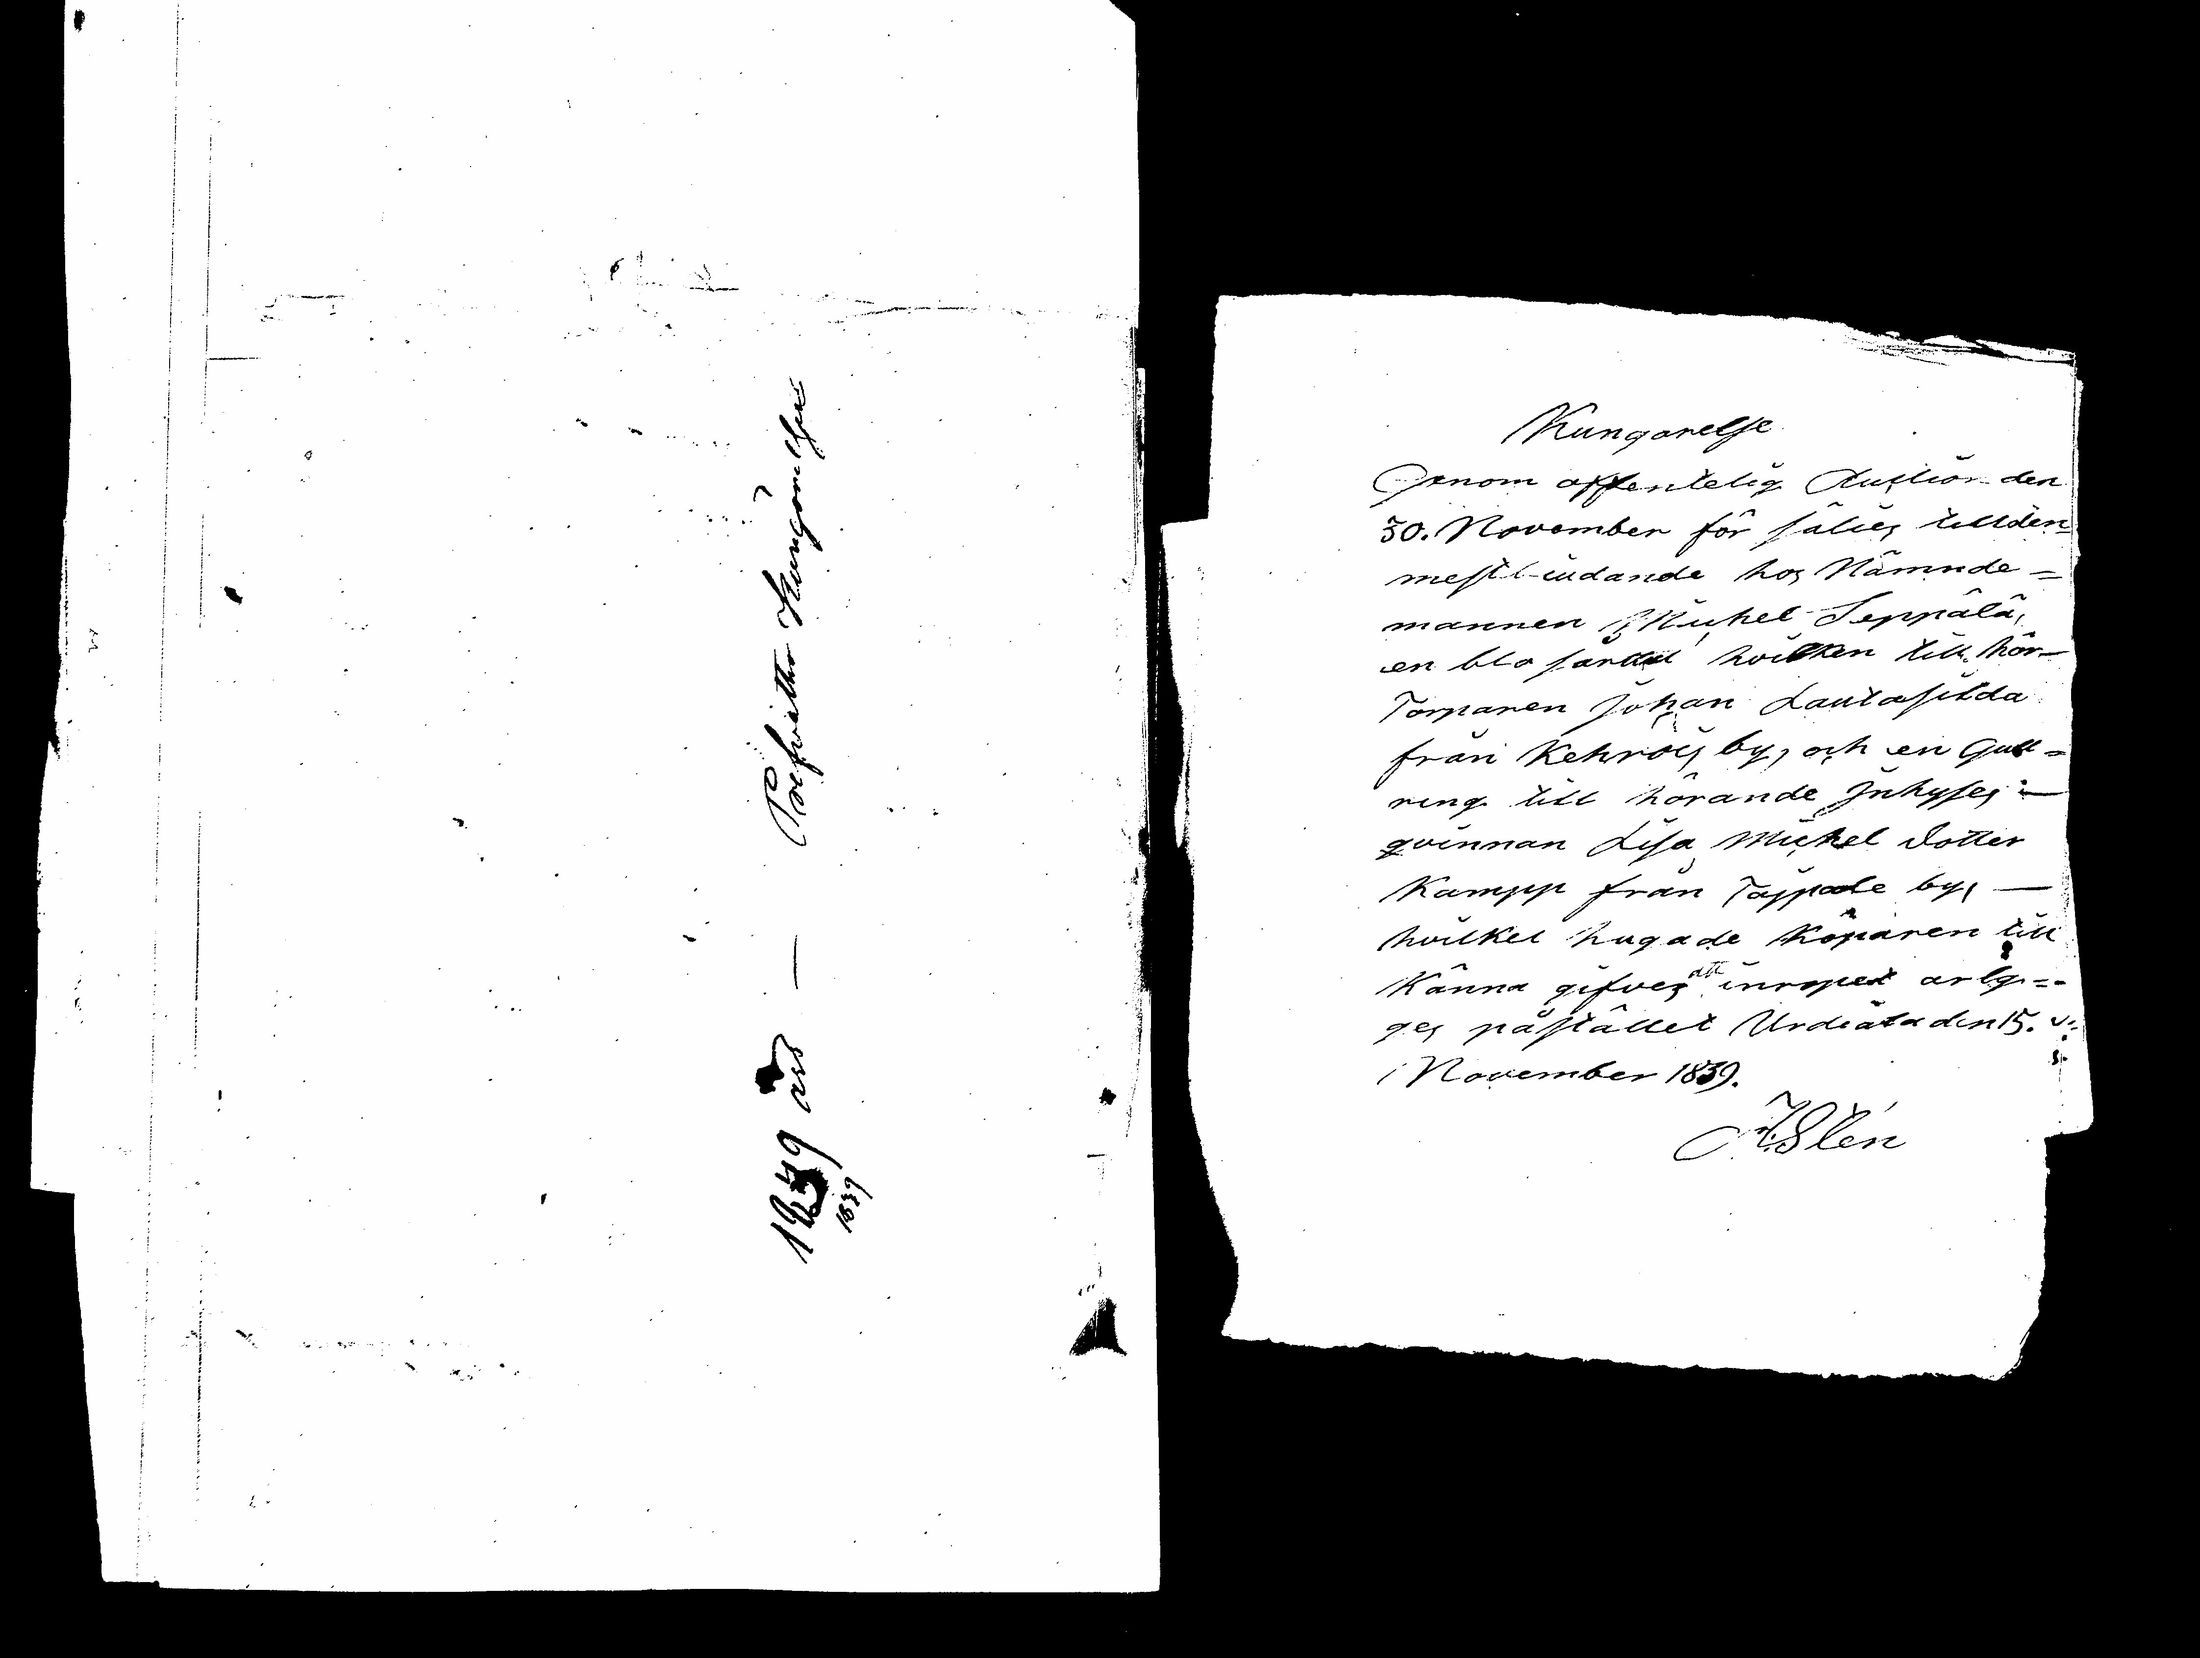 1839 års — Poefwatke Kungörelser
1839
Kungorelse
Genom offentelig Auction den
30. November för säljes till den=
mestbiudande hos Nämnde=
mannen Michel Seppälä,
en bla sartut hvilken till hör-
Torparen Johan Lautasilda
från Kehrois by, och en Gull=
ring till hörande Inhyses=
qvinnan Lisa Michel dotter
Kampp från Tappale by, —
hvilket hugade Köparen till
Känna gifves att inropet arlg=
ges påstället Urdiala den 15.
November 1839.
A. Slén